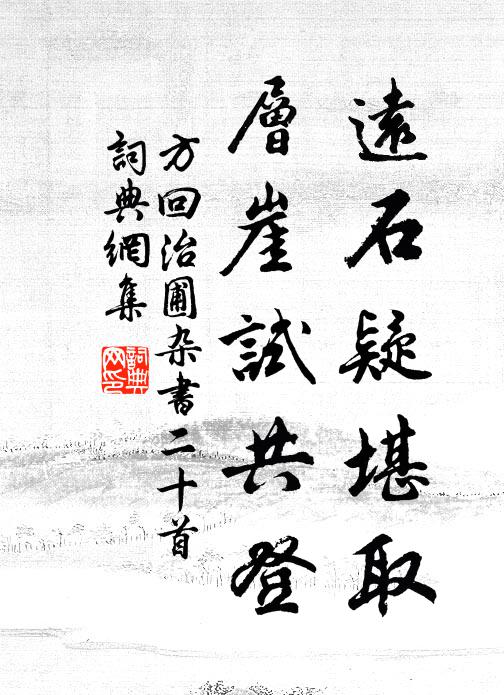 遠石疑堪取
層崖試共登
方回治圃杂書二十首
詞典網集
詞典网印